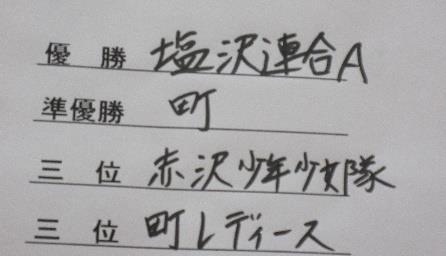 優勝 塩沢連合A
準優勝 町
三位 赤沢少年少女隊
三位 町レディース